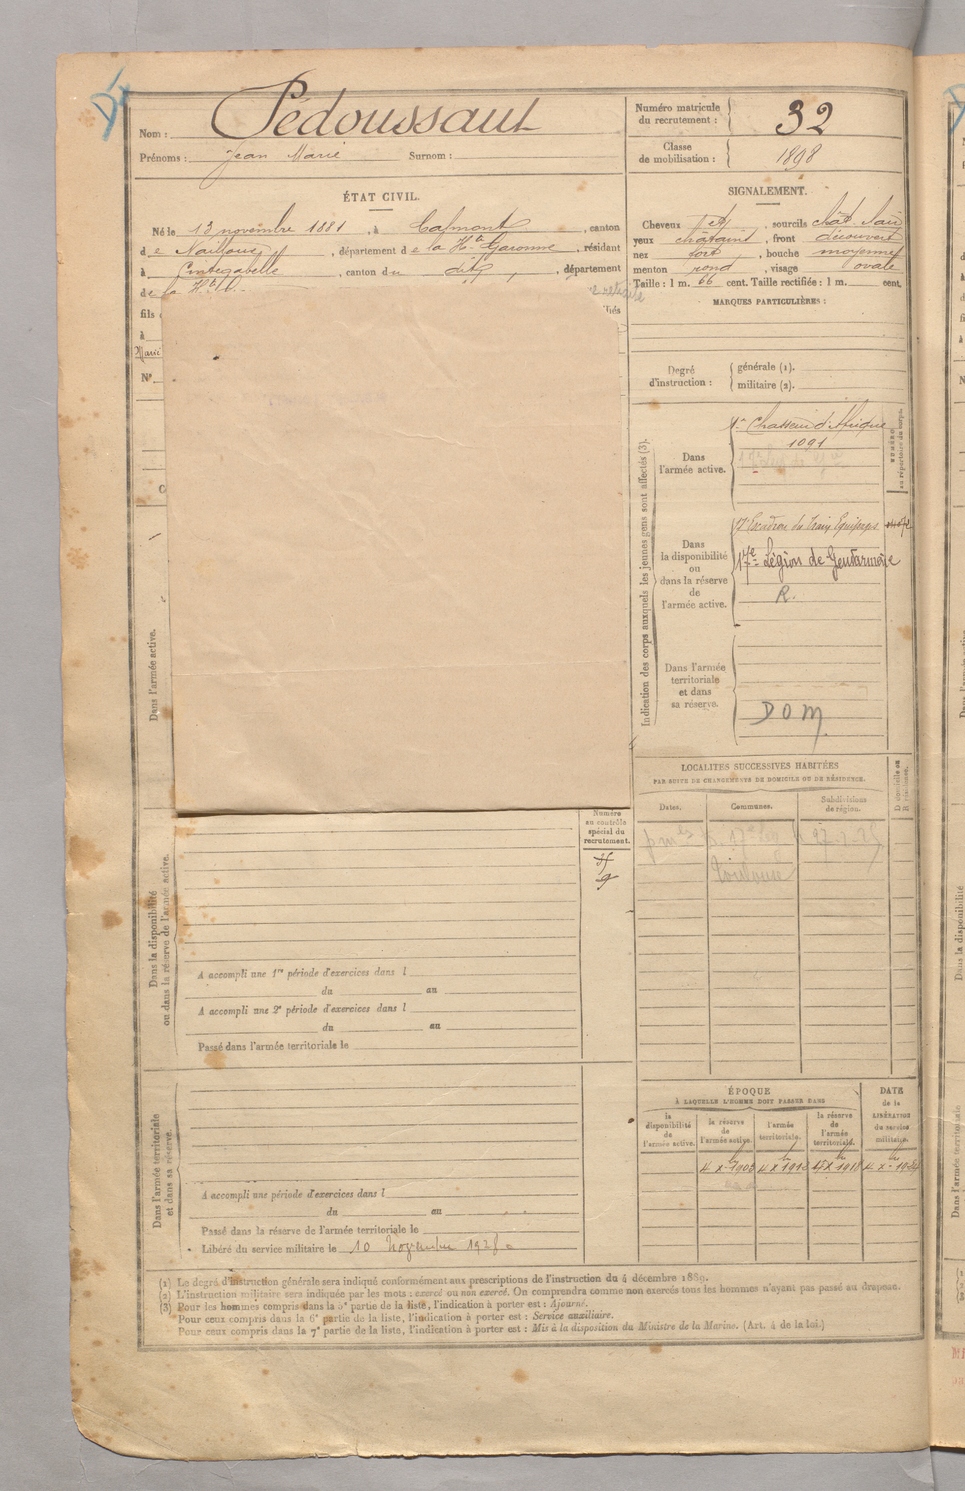 Nom : Pédoussaut
Prénoms : Jean Marie Surnom :
Numéro matricule du recrutement : 32
Classe de mobilisation : 1898
ÉTAT CIVIL.
Né le 13 novembre 1881, à Calmont, canton
de Nailloux, département de la Hte Garonne, résidant
à Cintegabelle, canton du dit, département
de la Hte
fils
à
Marie
N°
SIGNALEMENT.
Cheveux , sourcils chât. clair
yeux châtains, front découvert
nez fort, bouche moyenne
menton rond, visage ovale
Taille : 1 m. 66 cent. Taille rectifiée : 1 m. cent.
MARQUES PARTICULIÈRES :
Degré d'instruction :
générale (1).
militaire (2).
Indication des corps auxquels les jeunes gens sont affectés (3).
NUMÉRO au répertoire du corps.
Dans l'armée active.
1er Chasseurs d'Afrique
1091
Dans la disponibilité ou dans la réserve de l'armée active.
17e Escadron du Train Equipages
17e Légion de Gendarmerie
R.
Dans l'armée territoriale et dans sa réserve.
DOM
LOCALITÉS SUCCESSIVES HABITÉES
PAR SUITE DE CHANGEMENTS DE DOMICILE OU DE RÉSIDENCE.
Dates.
Communes.
Subdivisions de région.
D domicile ou R résidence.
Toulouse
Dans l'armée active.
Numéro au contrôle spécial du recrutement.
Dans la disponibilité ou dans la réserve de l'armée active.
A accompli une 1re période d'exercices dans l
du au
A accompli une 2e période d'exercices dans l
du au
Passé dans l'armée territoriale le
ÉPOQUE
À LAQUELLE L'HOMME DOIT PASSER DANS
la disponibilité de l'armée active.
la réserve de l'armée active.
l'armée territoriale.
la réserve de l'armée territoriale.
DATE de la LIBÉRATION du service militaire.
Dans l'armée territoriale et dans sa réserve.
A accompli une période d'exercices dans l
du au
Passé dans la réserve de l'armée territoriale le
Libéré du service militaire le 10 Novembre 1928
(1) Le degré d'instruction générale sera indiqué conformément aux prescriptions de l'instruction du 4 décembre 1889.
(2) L'instruction militaire sera indiquée par les mots : exercé ou non exercé. On comprendra comme non exercés tous les hommes n'ayant pas passé au drapeau.
(3) Pour les hommes compris dans la 5e partie de la liste, l'indication à porter est : Ajourné.
Pour ceux compris dans la 6e partie de la liste, l'indication à porter est : Service auxiliaire.
Pour ceux compris dans la 7e partie de la liste, l'indication à porter est : Mis à la disposition du Ministre de la Marine. (Art. 4 de la loi.)